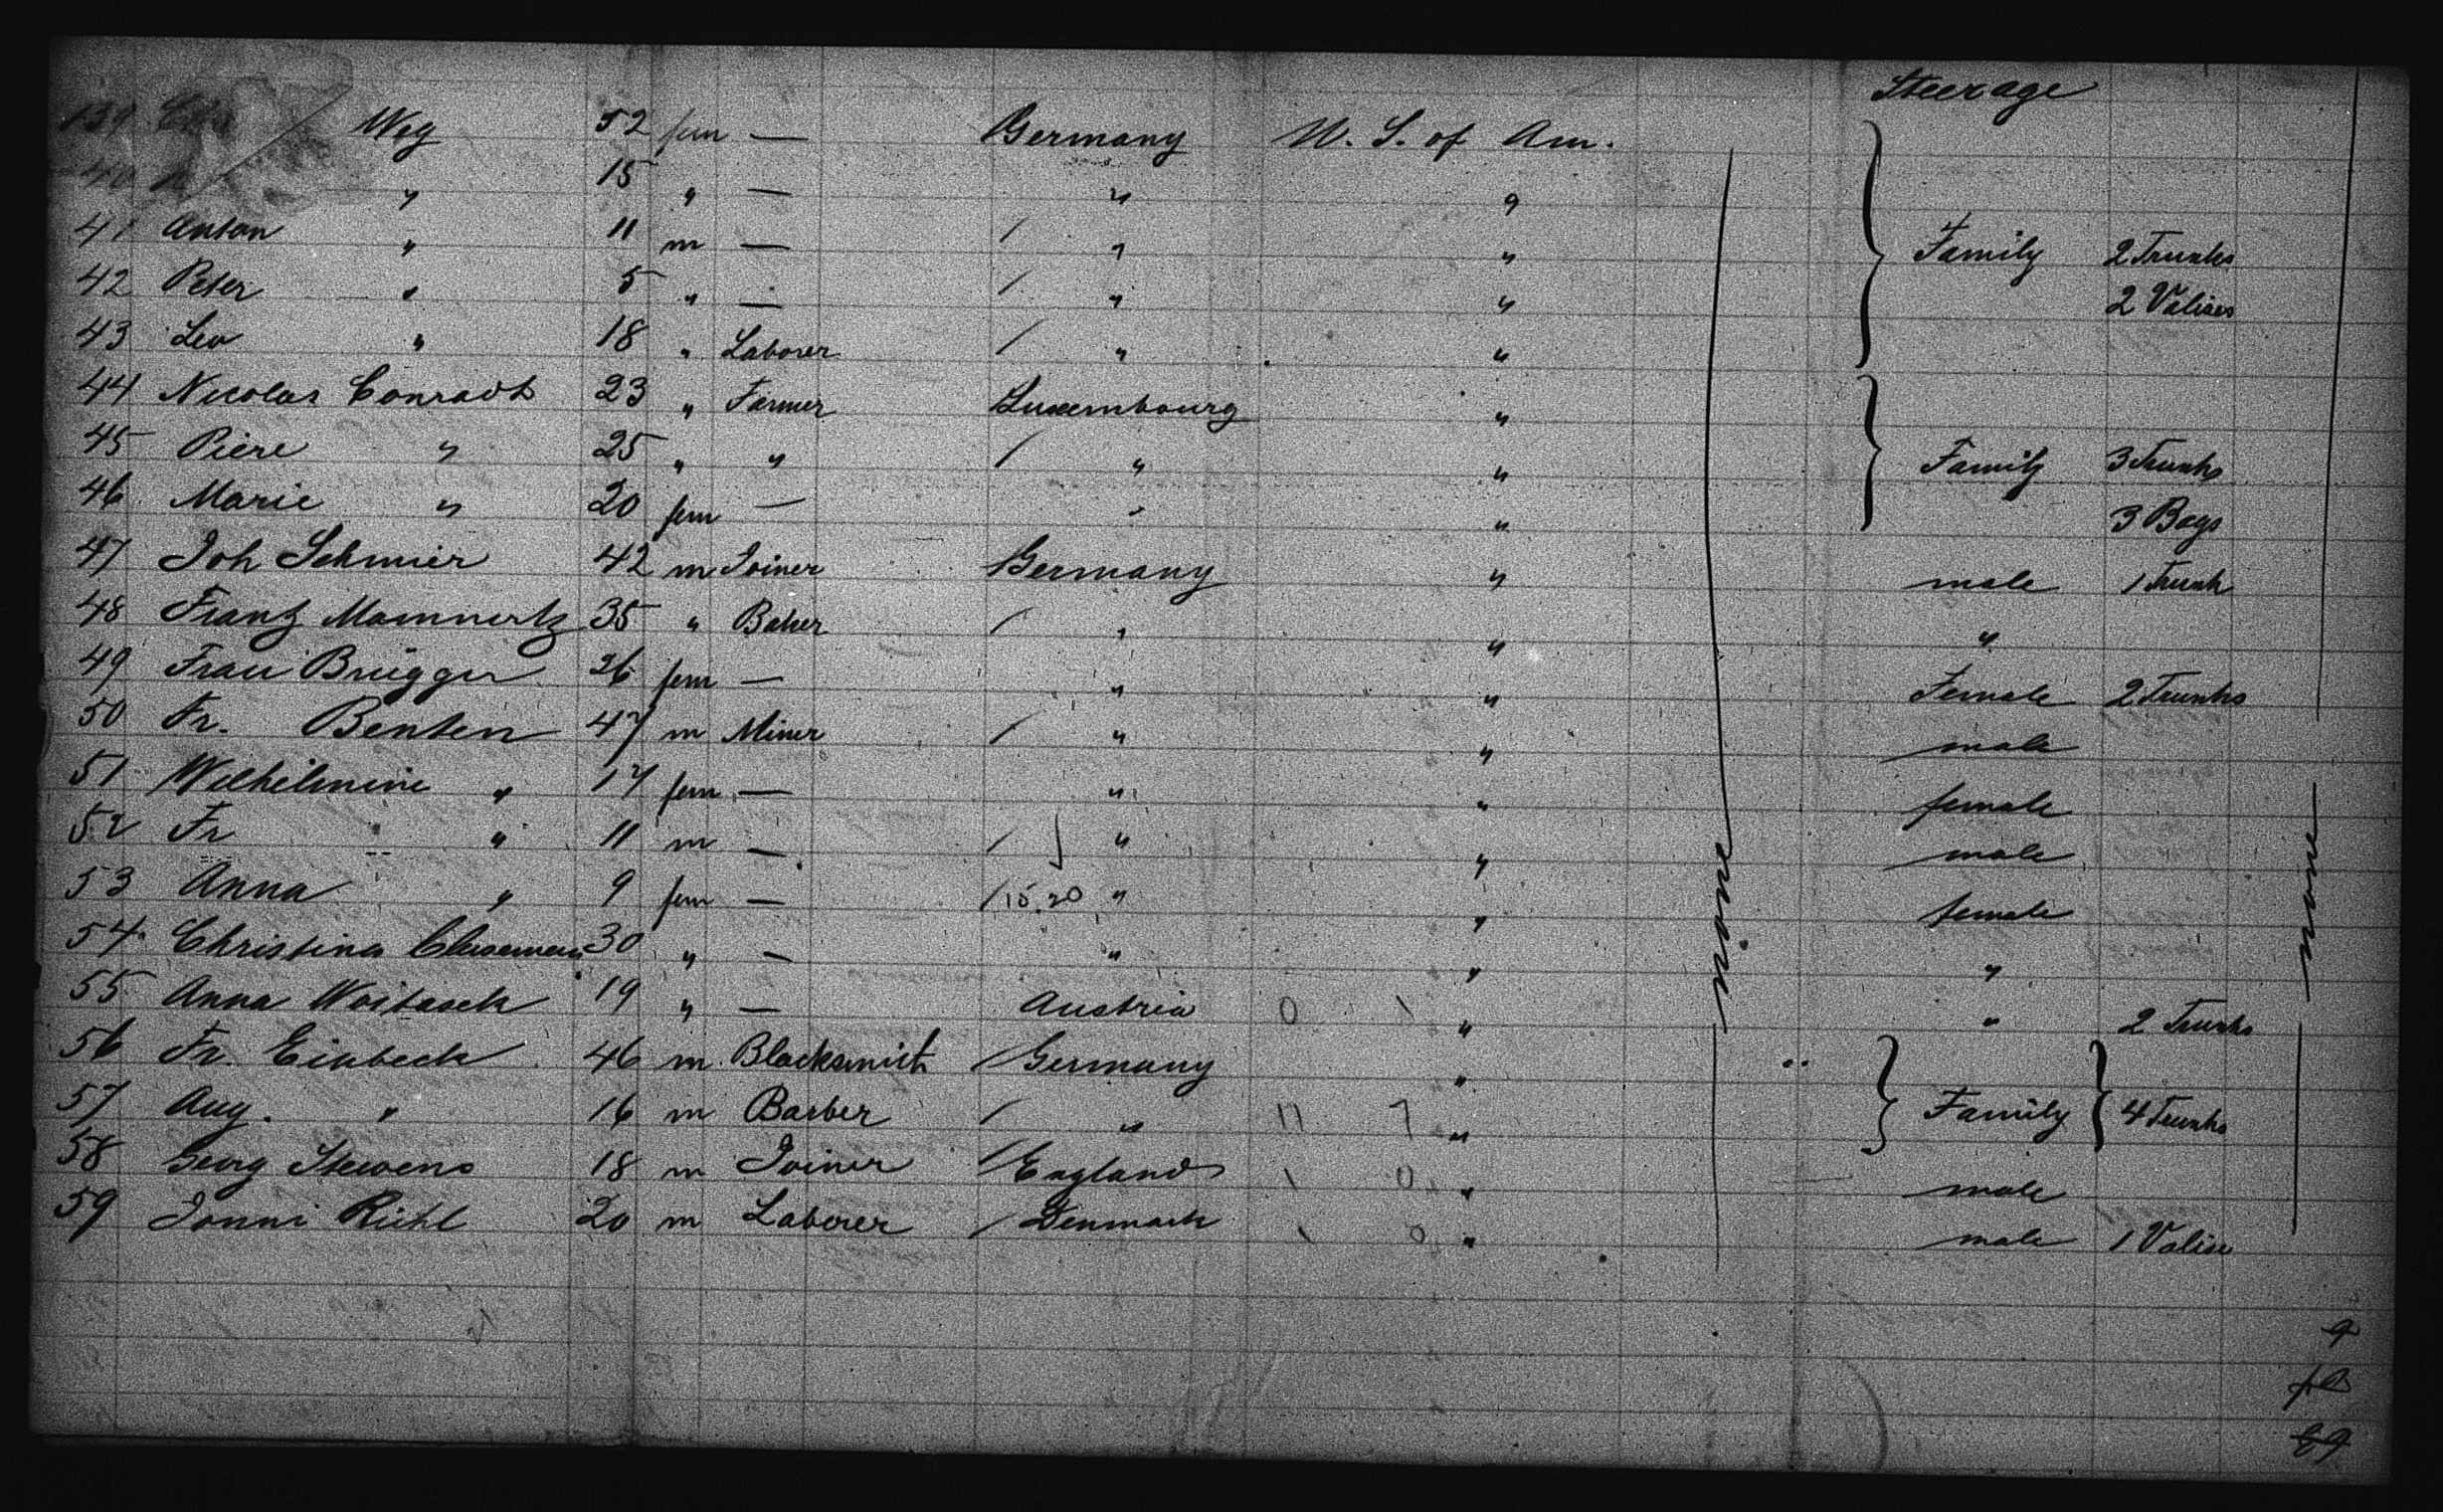 Steerage
139 Weg 52 fem — Germany U. S. of Am.
40 " 15 " — " "
41 Anton " 11 m — / " " Family 2 Trunks
42 Peter " 5 " — / " " 2 Valises
43 Leo " 18 " Laborer / " "
44 Nicolas Conradt 23 " Farmer Luxembourg "
45 Piere " 25 " " / " " Family 3 Trunks
46 Marie " 20 fem — " " 3 Bags
47 Joh Schmier 42 m Joiner Germany " male 1 Trunk
48 Frantz Mamnertz 35 " Baker / " " "
49 Frau Brügger 26 fem — " " Female 2 Trunks
50 Fr. Benten 47 m Miner / " " male
51 Wilhelmine " 17 fem — " " female
52 Fr " 11 m — / " " male
53 Anna " 9 fem — / 15.20 " " female
54 Christina 30 " — " " "
55 Anna Woitasek 19 " — Austria 0 1 " " 2 Trunks
56 Fr. Einbeck 46 m Blacksmith / Germany "
57 Aug. " 16 m Barber / " 11 7 " Family 4 Trunks
58 Georg Stewens 18 m Joiner / England 1 0 " male
59 Jonni Riehl 20 m Laborer / Denmark 1 0 " male 1 Valise
none
none